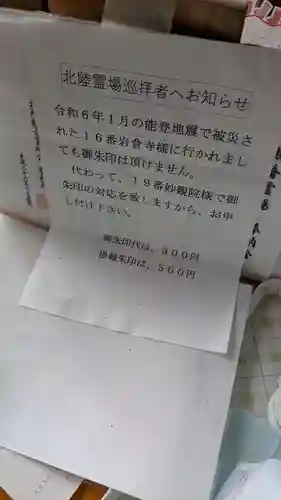 北陸霊場巡拝者へお知らせ
令和６年１月の能登地震で被災さ
れた１６番岩倉寺様に行かれまし
ても御朱印は頂けません。
代わって、１９番妙観院様で御
朱印の対応を致しますから、お申
し付け下さい。
御朱印代は、３００円
掛軸朱印は、５００円